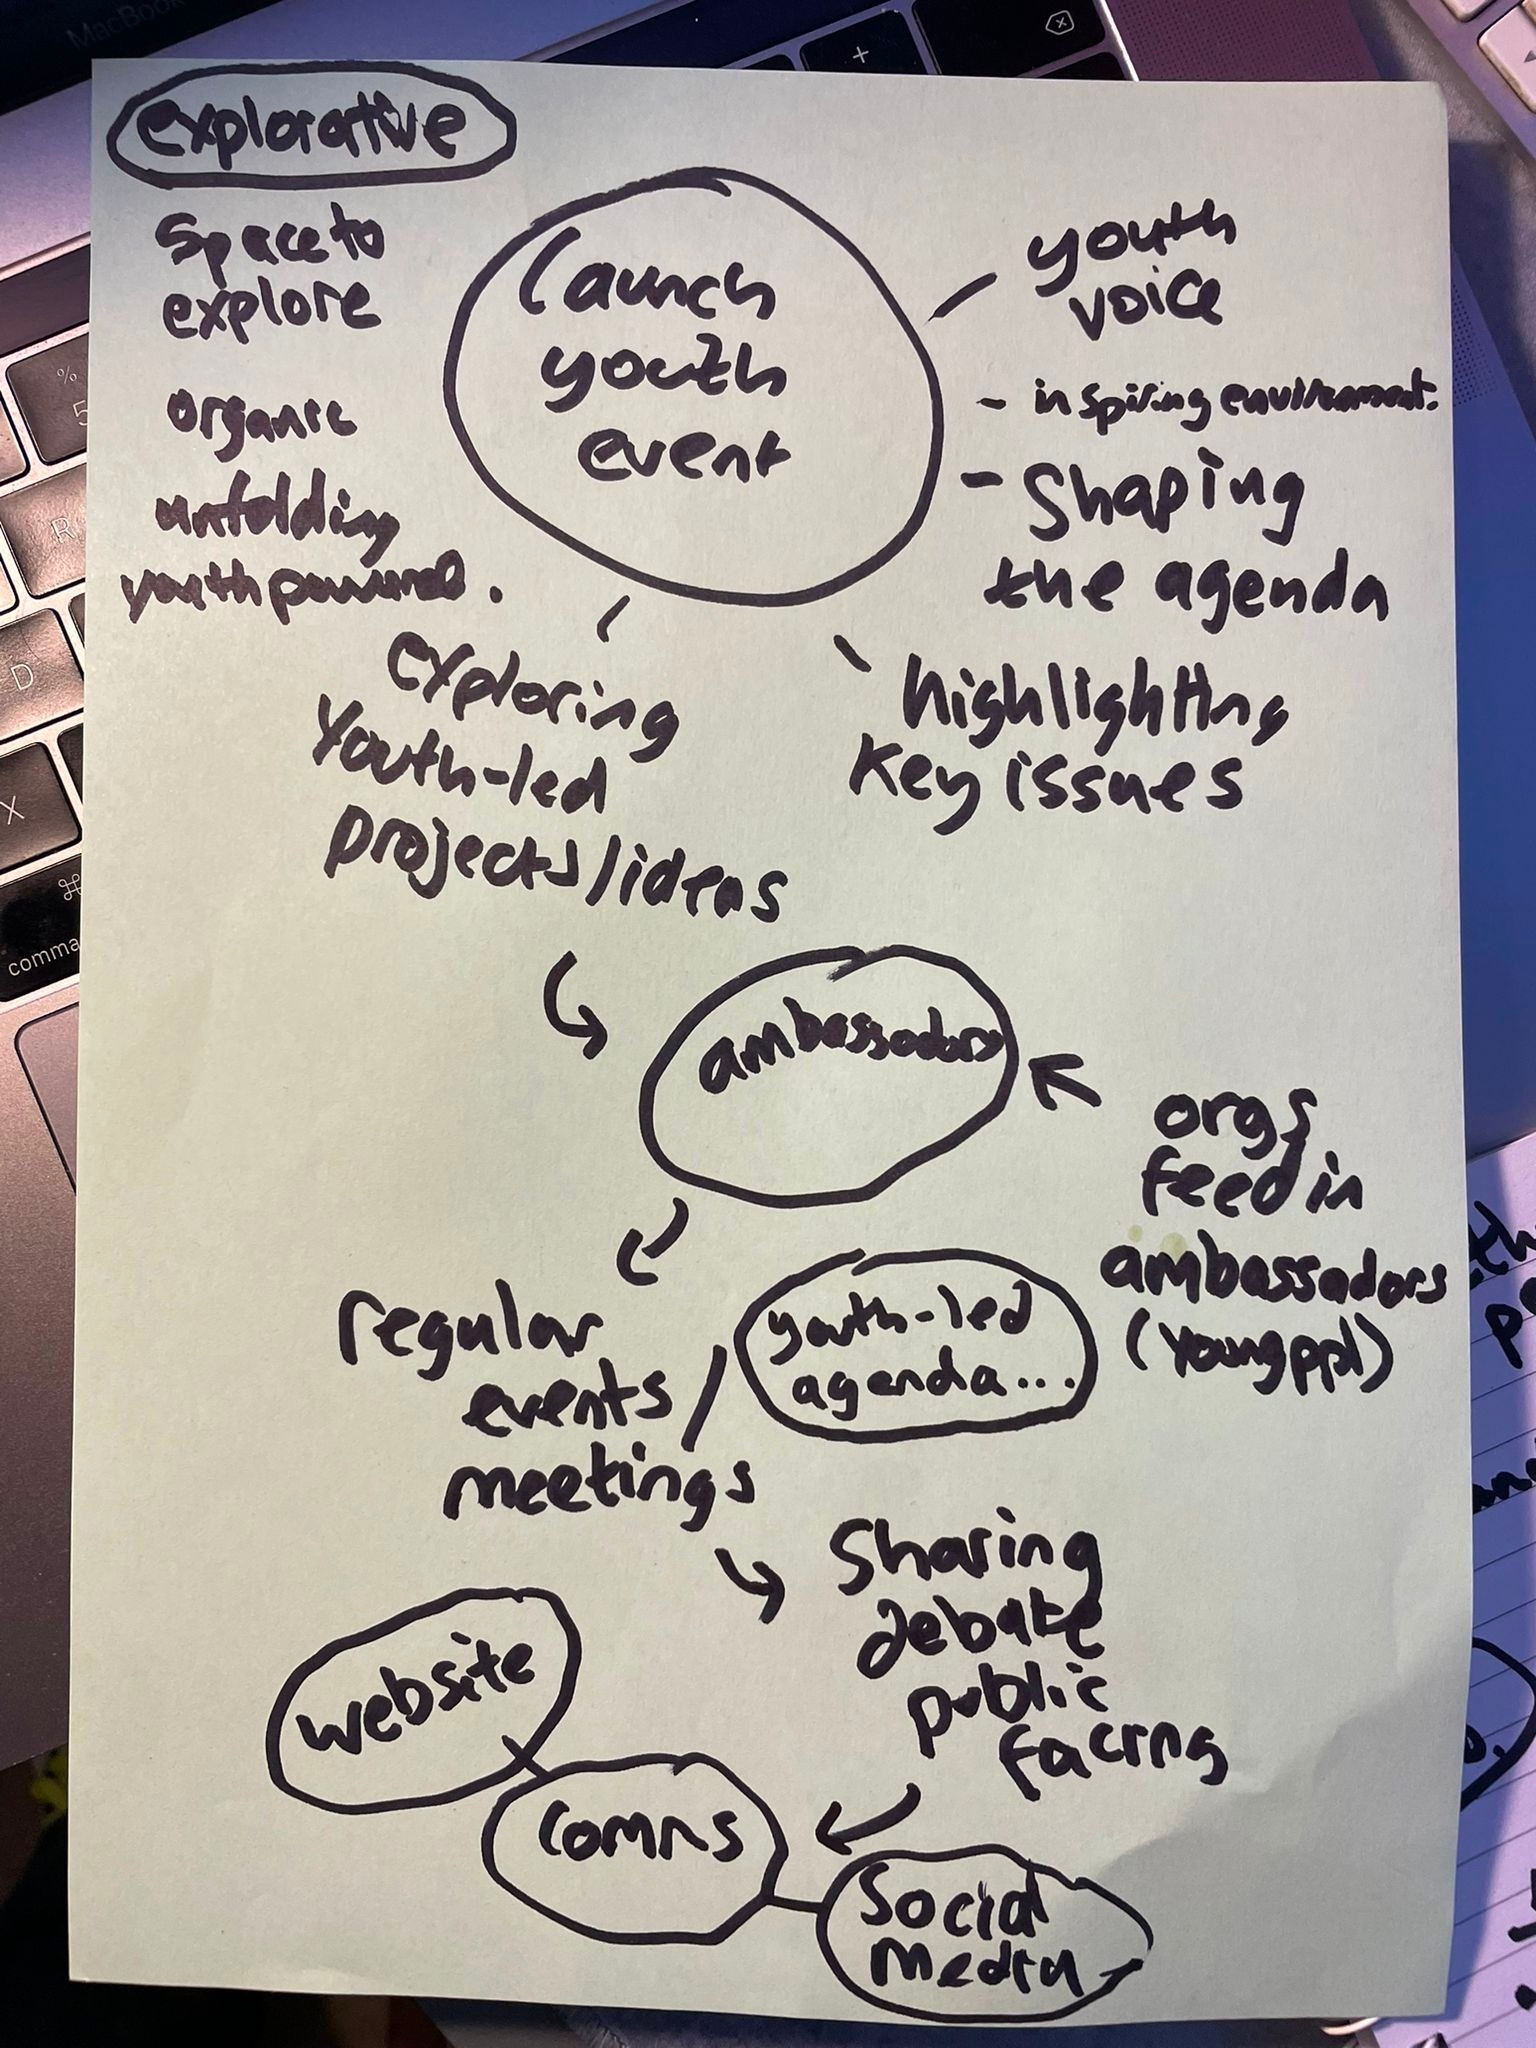 MacBook
explorative
Space to
explore
organic
unfolding
youth powered.
launch
youth
event
youth
voice
- inspiring environment.
- Shaping
the agenda
highlighting
key issues
exploring
Youth-led
projects/ideas
ambassadors
orgs
feed in
ambassadors
(young ppl)
regular
events/
meetings
youth-led
agenda...
Sharing
debate
public
facing
website
comms
Social
Media
+
%
5
R
D
X
⌘
comma